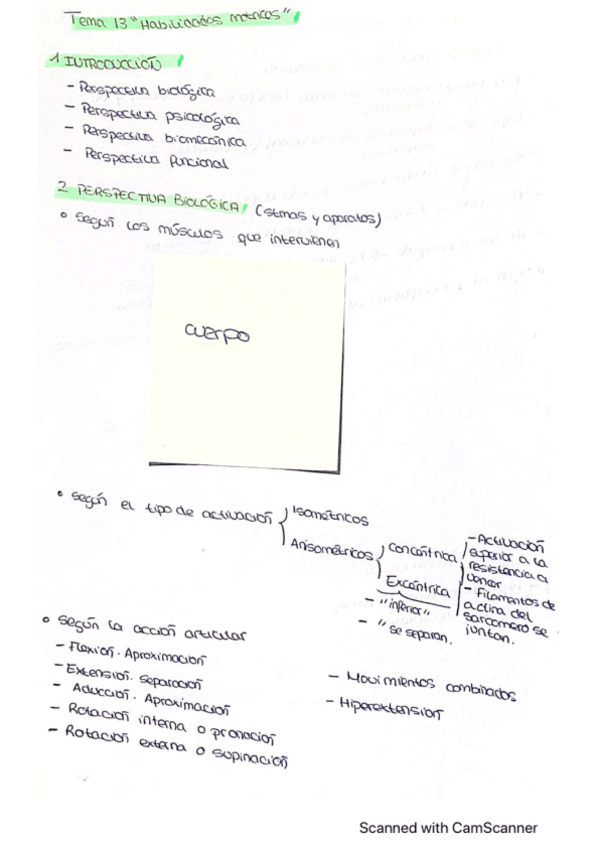 Tema 13 "Habilidades motrices"
1 INTRODUCCIÓN
- Perspectiva biológica
- Perspectiva psicológica
- Perspectiva biomecánica
- Perspectiva funcional
2 PERSPECTIVA BIOLÓGICA (stmas y aparatos)
• Según los músculos que intervienen
cuerpo
• Según el tipo de activación
Isométricos
Anisométricos
Concéntrica
- Activación
superior a la
resistencia a
vencer
- Filamentos de
actina del
sarcomero se
juntan.
Excéntrica
- "inferior"
- "se separan.
• Según la acción articular
- Flexión. Aproximación
- Extensión. Separación
- Aducción. Aproximación
- Rotación interna o pronación
- Rotación externa o supinación
- Movimientos combinados
- Hiperextensión
Scanned with CamScanner